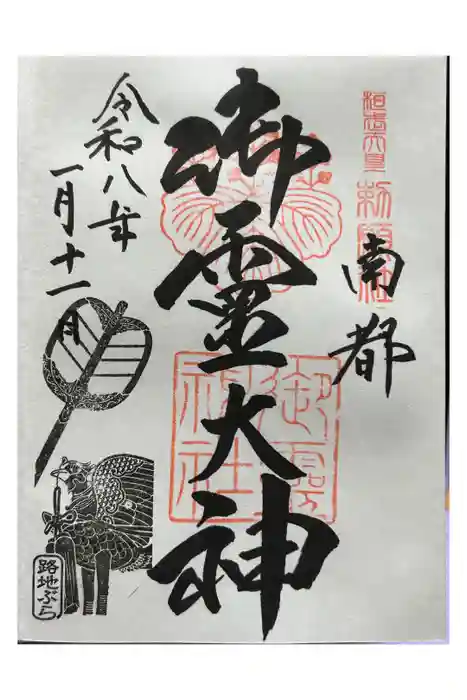 桓武天皇勅願社
南都
御靈大神
御霊神社
令和八年
一月十一日
路地ぶら